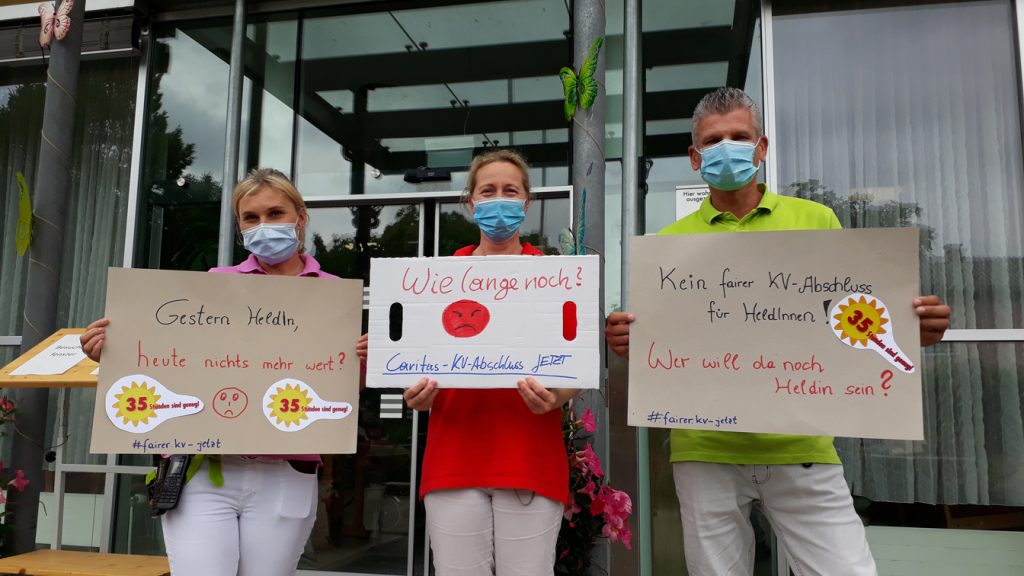 Gestern HeldIn,
heute nichts mehr wert?
35 Stunden sind genug!
35 Stunden sind genug!
#fairer.kv-jetzt
Wie lange noch?
Caritas-KV-Abschluss JETZT
Kein fairer KV-Abschluss
für HeldInnen!
35 Stunden sind genug!
Wer will da noch
Heldin sein?
#fairer.kv-jetzt
Hier